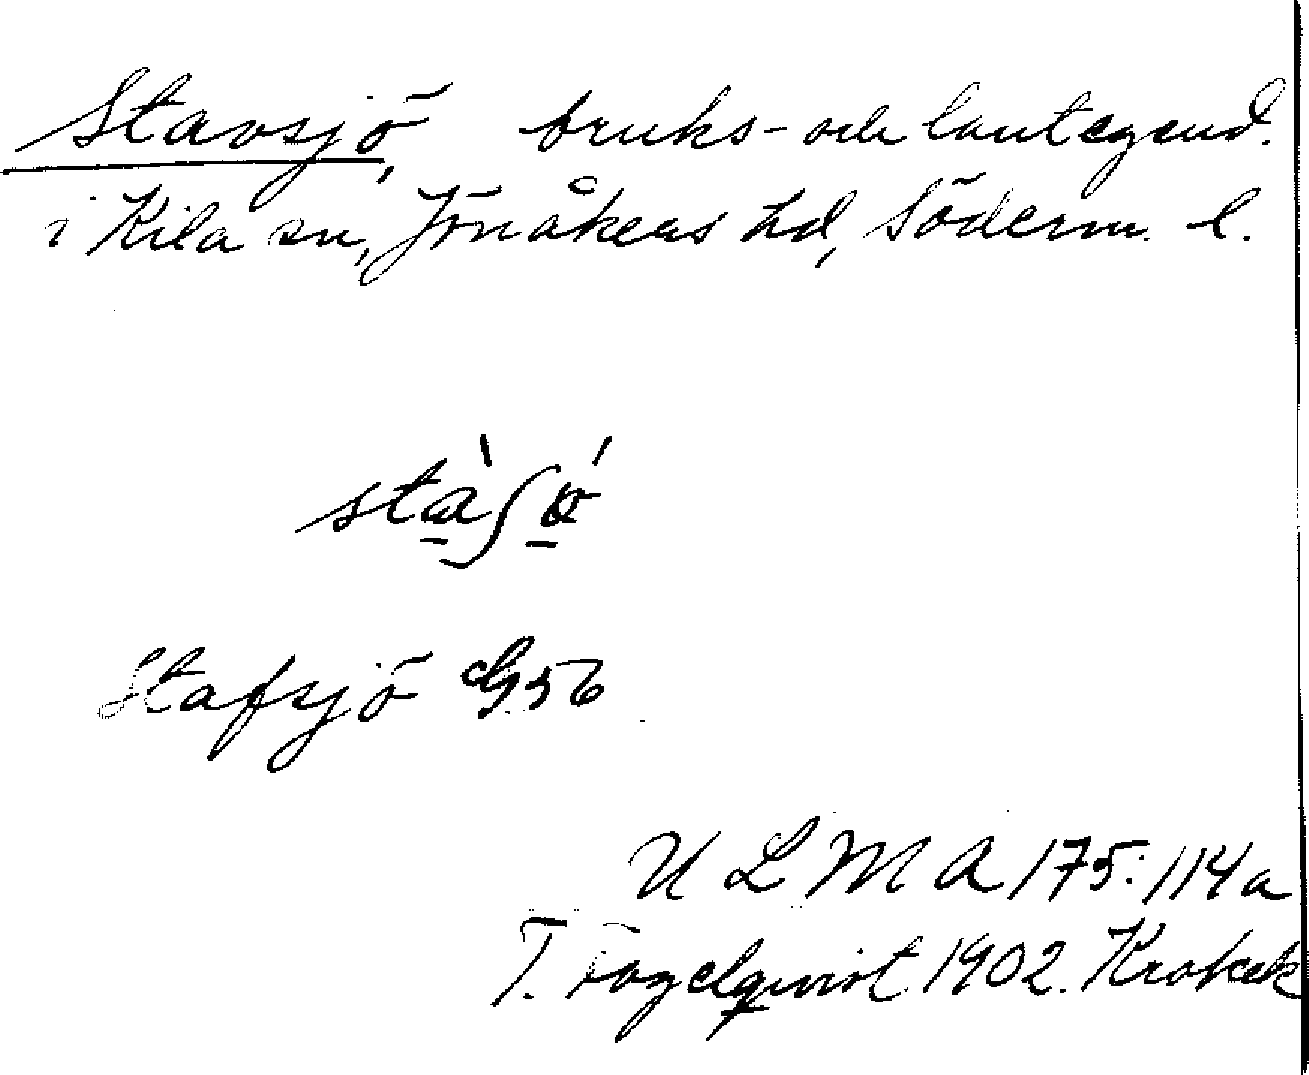 Stavsjö, bruks- och lantegend.
i Kila sn, Jönåkers hd, Söderm. l.
stàʃö́
Stafsjö G 56
U L M A 175:114a
T. Fogelqvist 1902. Krokek